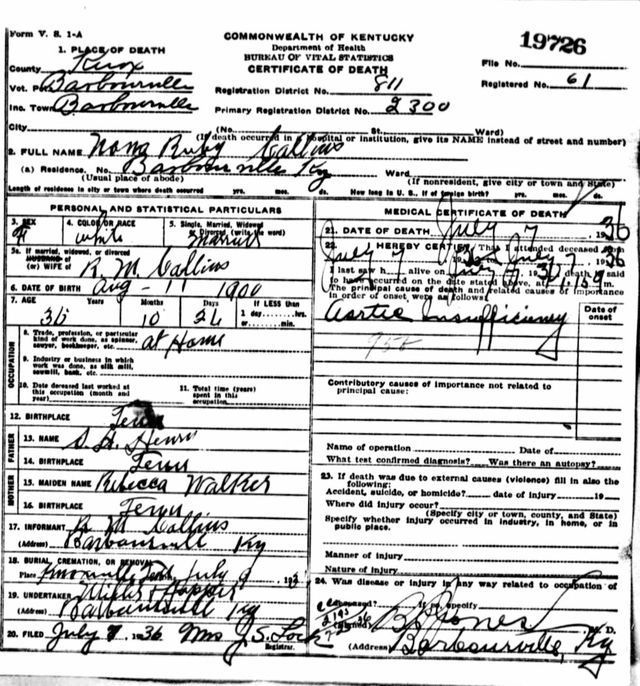 Form V. S. 1-A
COMMONWEALTH OF KENTUCKY
Department of Health
BUREAU OF VITAL STATISTICS
CERTIFICATE OF DEATH
19726
File No.
Registered No. 61
1. PLACE OF DEATH
County Knox
Vot. Barbourville
Inc. Town Barbourville
City
Registration District No. 811
Primary Registration District No. 2300
(No. St. Ward)
(If death occurred in a hospital or institution, give its NAME instead of street and number)
2. FULL NAME Nona Ruby Collins
(a) Residence. No. Barbourville Ky Ward
(Usual place of abode) (If nonresident, give city or town and State)
Length of residence in city or town where death occurred yrs. mos. ds. How long in U. S., if of foreign birth? yrs. mos. ds.
PERSONAL AND STATISTICAL PARTICULARS
3. SEX F
4. COLOR OR RACE white
5. Single, Married, Widowed
Divorced (write the word)
Married
5a. If married, widowed, or divorced
HUSBAND of
(or) WIFE of R. M. Collins
6. DATE OF BIRTH Aug - 11 1900
7. AGE Years Months Days If LESS than
1 day hrs.
or min.
35 10 26
OCCUPATION
8. Trade, profession, or particular
kind of work done, as spinner,
sawyer, bookkeeper, etc. at Home
9. Industry or business in which
work was done, as silk mill,
sawmill, bank, etc.
10. Date deceased last worked at
this occupation (month and
year)
11. Total time (years)
spent in this
occupation
12. BIRTHPLACE Tenn
FATHER
13. NAME Henry
14. BIRTHPLACE Tenn
MOTHER
15. MAIDEN NAME Rebecca Walker
16. BIRTHPLACE Tenn
17. INFORMANT R M Collins
(Address) Barbourville Ky
18. BURIAL, CREMATION, OR REMOVAL
Place Knoxville Tenn July 9 193
19. UNDERTAKER Hopper
(Address) Barbourville Ky
20. FILED July 9 1936 Mrs J. S. Lock
Registrar.
MEDICAL CERTIFICATE OF DEATH
21. DATE OF DEATH July 7 1936
22. I HEREBY CERTIFY That I attended deceased from
July 7 1936 to July 7 1936
I last saw h alive on July 7 1936 death is said
to have occurred on the date stated above, at
The principal cause of death and related causes of importance
in order of onset were as follows:
Date of
onset
Aortic Insufficiency
95
Contributory causes of importance not related to
principal cause:
Name of operation Date of
What test confirmed diagnosis? Was there an autopsy?
23. If death was due to external causes (violence) fill in also the
following:
Accident, suicide, or homicide? date of injury 19
Where did injury occur?
(Specify city or town, county, and State)
Specify whether injury occurred in industry, in home, or in
public place.
Manner of injury
Nature of injury
24. Was disease or injury in any way related to occupation of
deceased? If so, specify
(Signed) Jones M. D.
(Address) Barbourville, Ky